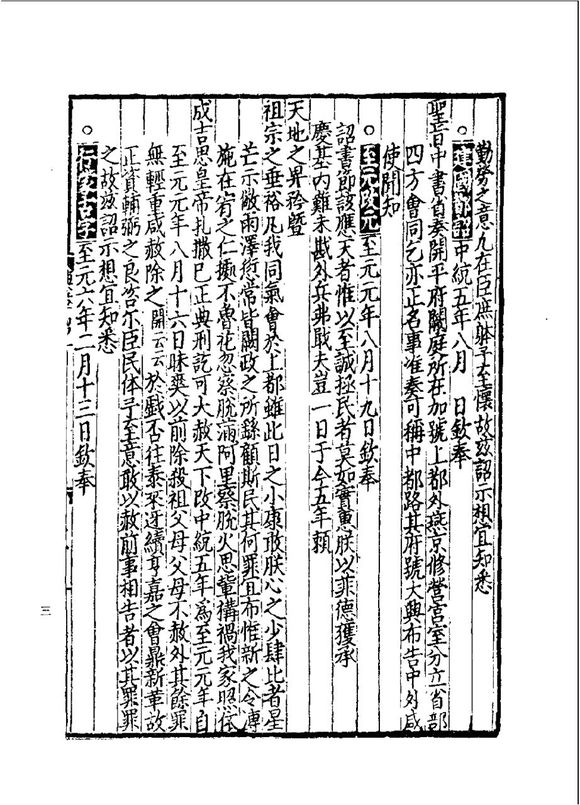 勤勞之意凡在臣庶躰予至懷故兹詔示想宜知悉
○建國都詔中統五年八月　日欽奉
聖旨中書省奏開平府闕庭所在加號上都外燕京修營宮室分立省部
四方會同乞亦正名事准奏可稱中都路其府號大興布告中外咸
使聞知
○至元改元至元元年八月十九日欽奉
詔書節該應天者惟以至誠拯民者莫如實惠朕以菲德獲承
慶基内難未戡外兵弗戢夫豈一日于今五年頼
天地之畀矜曁
祖宗之垂裕凡我同氣會於上都雖此日之小康敢朕心之少肆比者星
芒示儆雨澤愆常皆闕政之所繇顧斯民其何罪宜布惟新之令溥
施在宥之仁據不魯花忽察脱滿阿里察脱火思輩搆禍我家照依
成吉思皇帝扎撒巳正典刑訖可大赦天下改中統五年爲至元元年自
至元元年八月十六日昧爽以前除殺祖父母父母不赦外其餘罪
無輕重咸赦除之開云云於戲否往泰來迓續亨嘉之會鼎新革故
正資輔弼之良咨尓臣民体予至意敢以赦前事相告者以其罪罪
之故兹詔示想宜知悉
○行蒙古字至元六年二月十三日欽奉
三